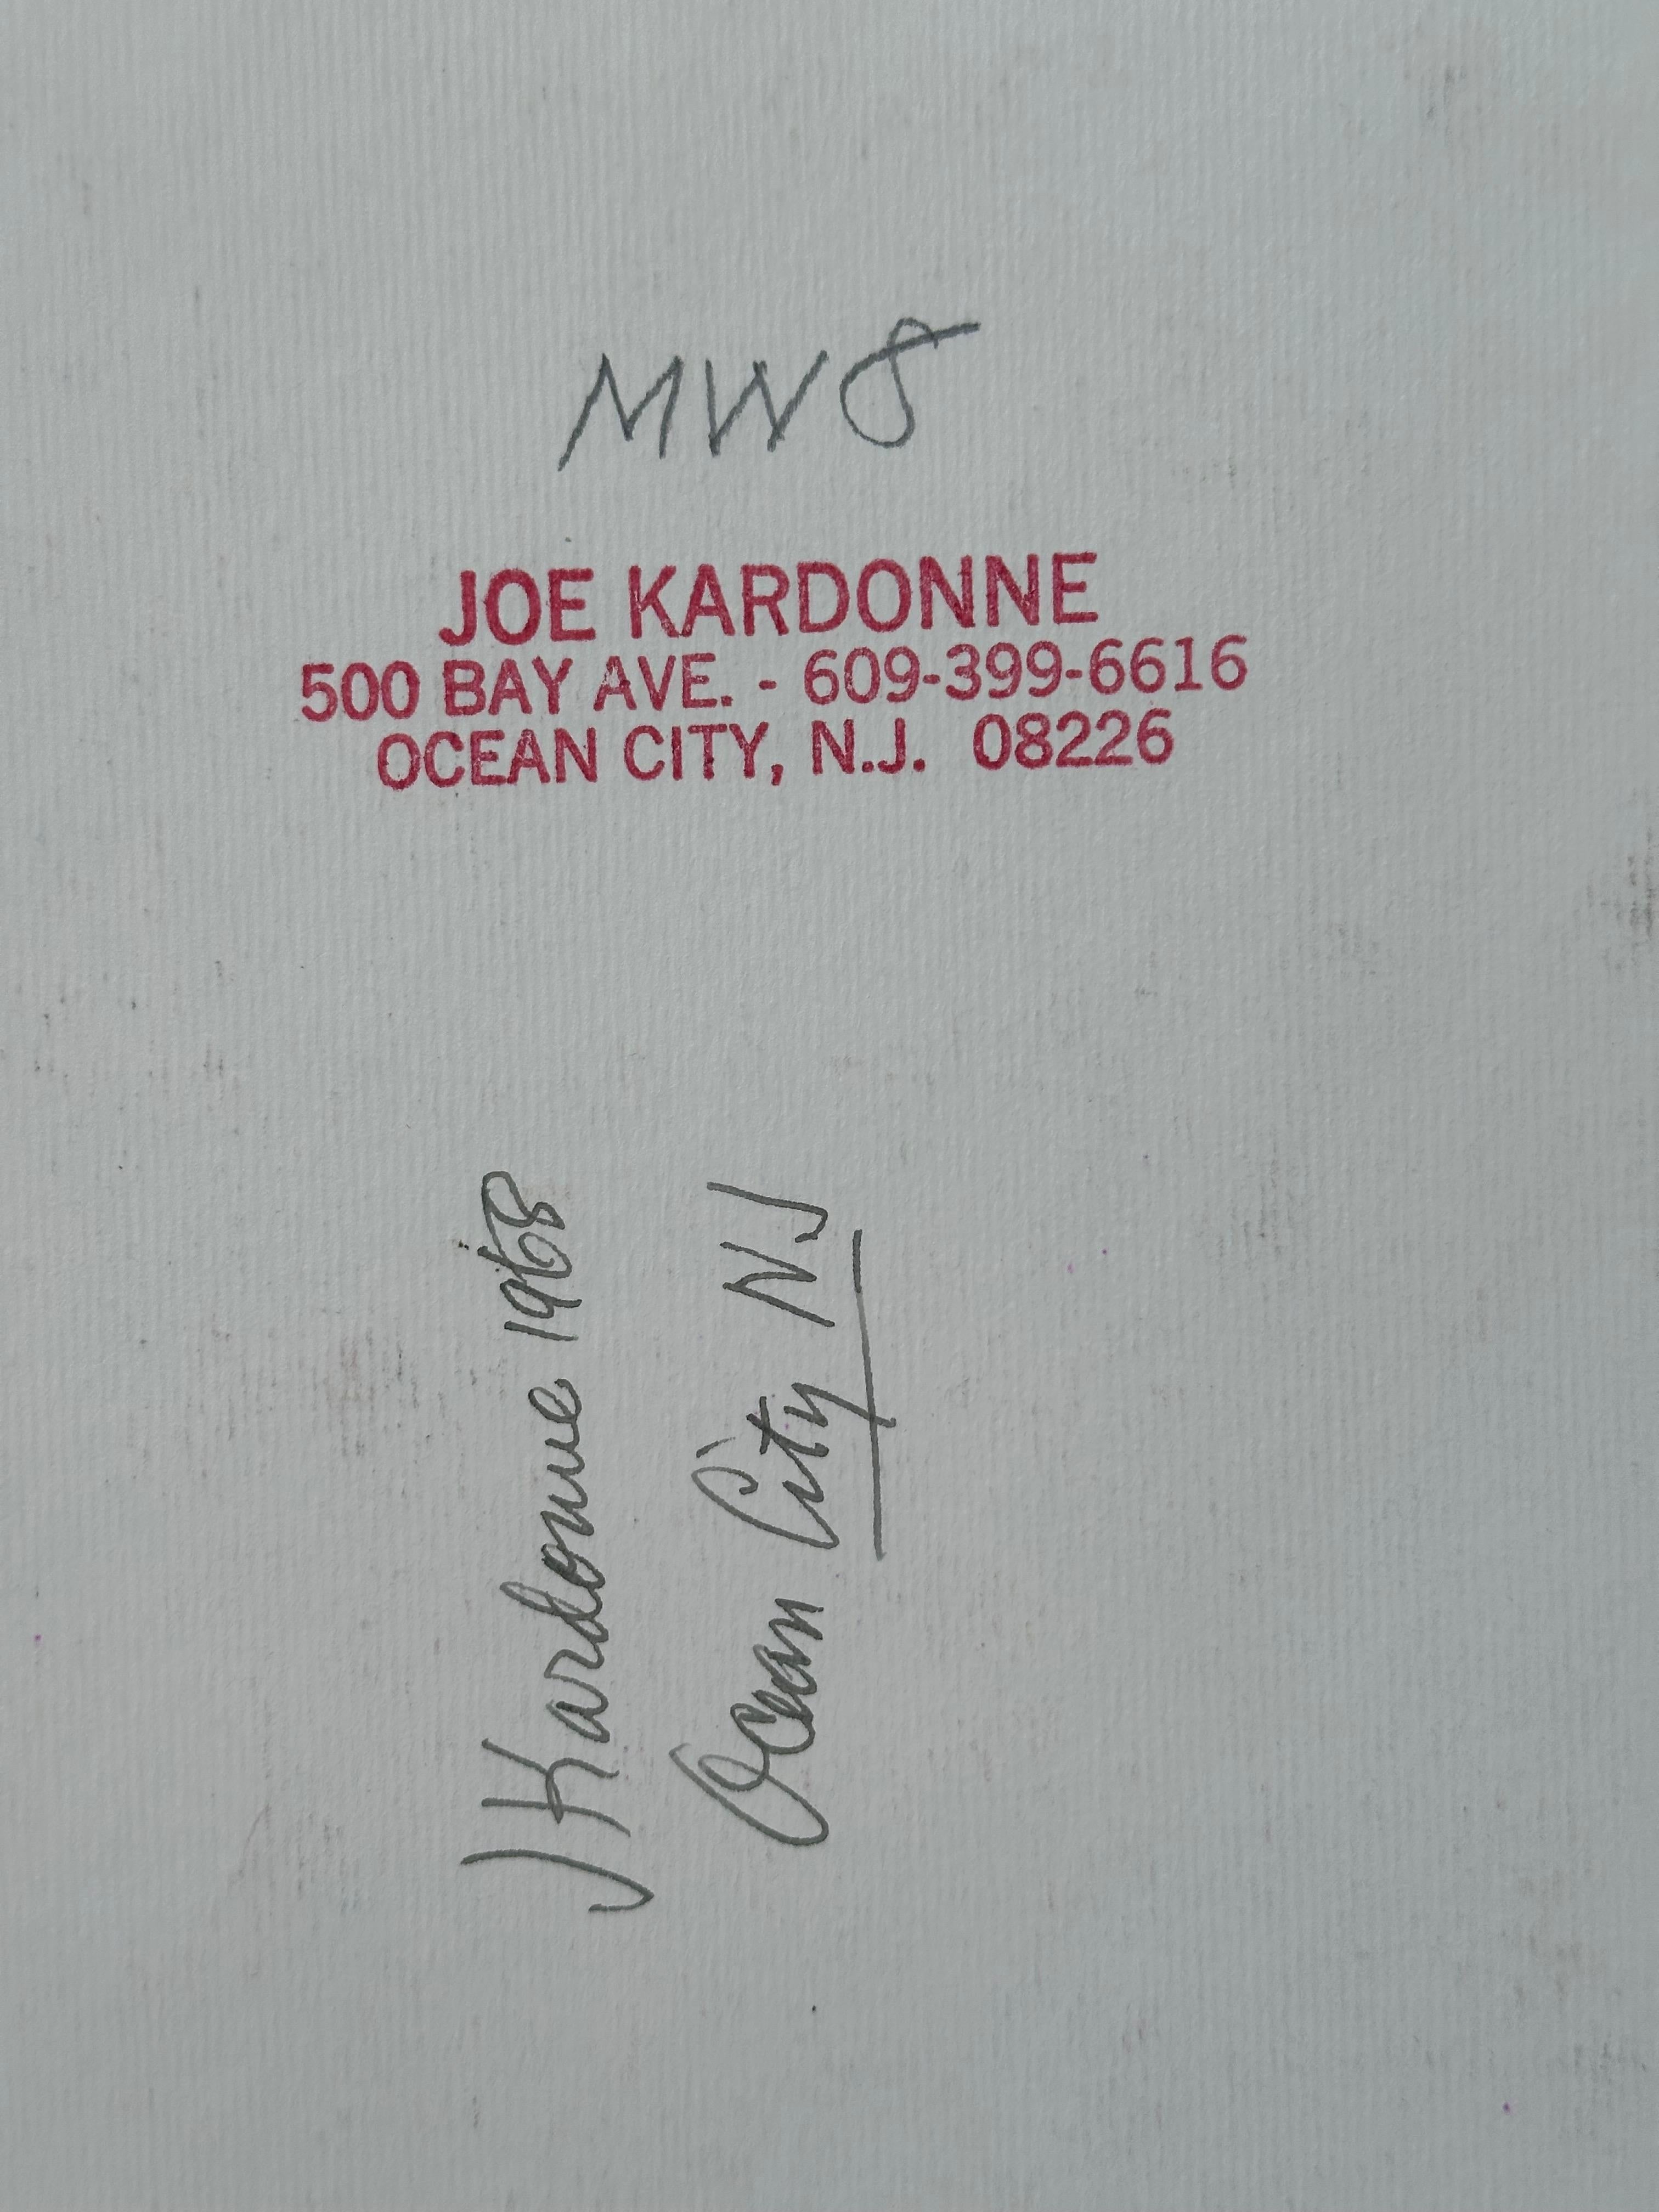 MW8
JOE KARDONNE
500 BAY AVE. - 609-399-6616
OCEAN CITY, N.J. 08226
J Kardonne 1968
Ocean City NJ